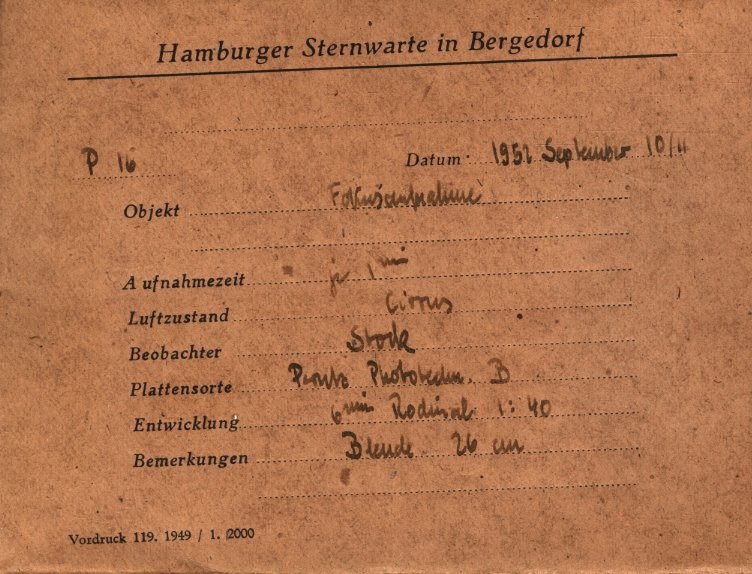 Hamburger Sternwarte in Bergedorf
P 16 Datum 1952 September 10/11
Objekt Fokusaufnahme
Aufnahmezeit je 1 min
Luftzustand Cirrus
Beobachter Stock
Plattensorte Perutz Phototechn. B
Entwicklung 6 min Rodinal 1:40
Bemerkungen Blende 26 cm
Vordruck 119. 1949 / 1. 2000